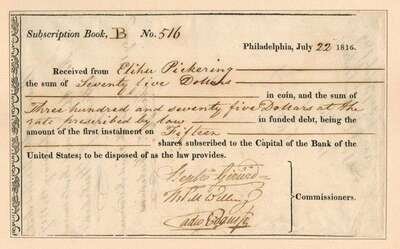 Subscription Book, B No. 516
Philadelphia, July 22 1816.
Received from Elihu Pickering
the sum of Seventy five Dollars
in coin, and the sum of
Three hundred and seventy five Dollars at the
rate prescribed by law in funded debt, being the
amount of the first instalment on Fifteen
shares subscribed to the Capital of the Bank of the
United States; to be disposed of as the law provides.
Stephen Girard
Tho M Willing
Cadw Evans Jr
Commissioners.